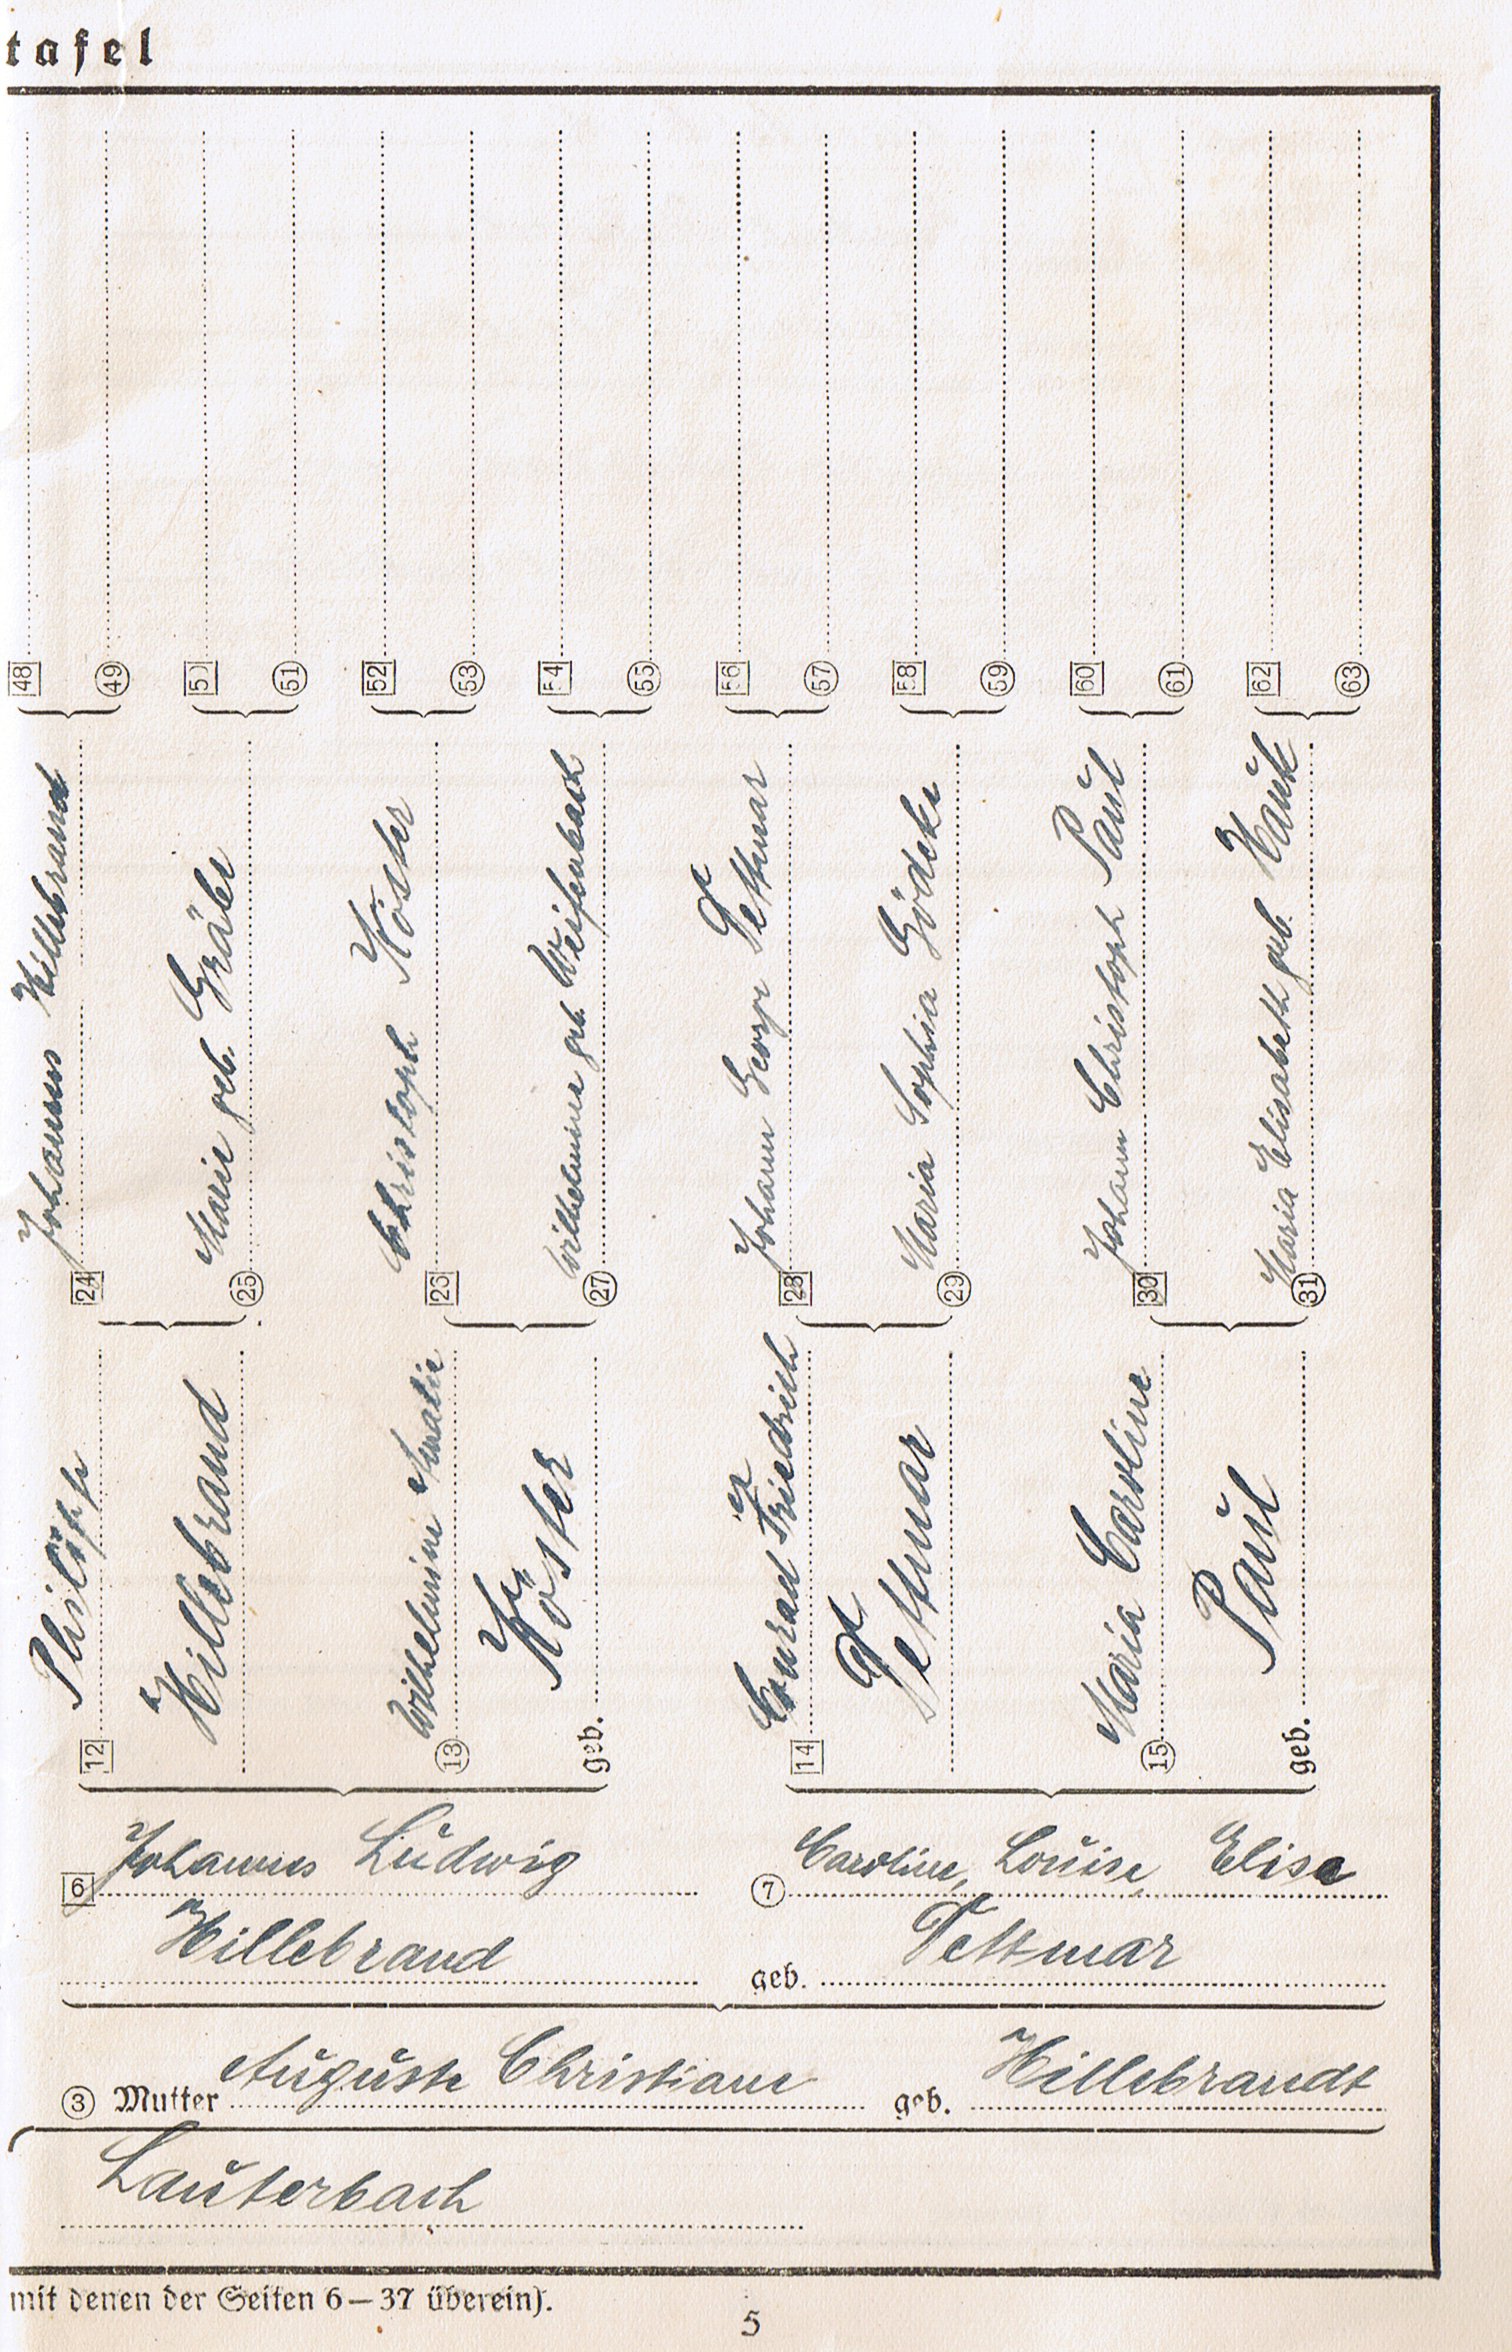 tafel
48
49
50
51
52
53
54
55
56
57
58
59
60
61
62
63
24 Johannes Hillebrand
25 Marie geb. Gräbe
26 Christoph Köster
27 Wilhelmine geb. Weifenbach
28 Johann George Tettmar
29 Maria Sophia Gödeke
30 Johann Christoph Paul
31 Maria Elisabeth geb. Hauk
12 Philipp
Hillebrand
13 Wilhelmine Amalie
geb. Köster
14 Conrad Friedrich
Tettmar
15 Maria Caroline
geb. Paul
6 Johannes Ludwig
Hillebrand
7 Caroline, Louise, Elise
geb. Tettmar
3 Mutter Auguste Christiane geb. Hillebrandt
Lauterbach
mit denen der Seiten 6—37 überein).
5